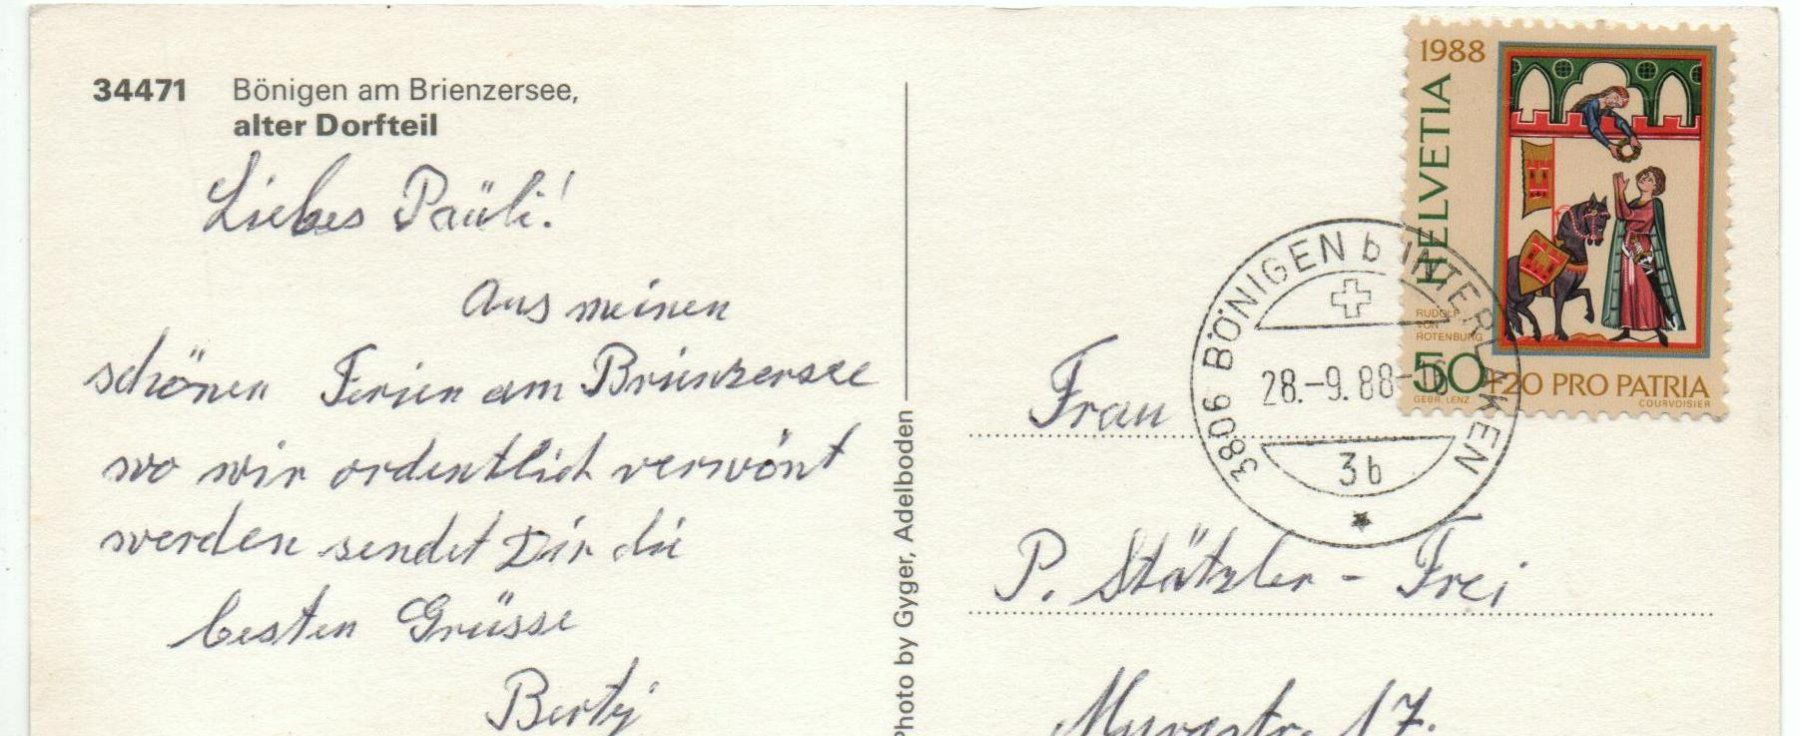 34471 Bönigen am Brienzersee,
alter Dorfteil
Liebes Päuli!
Aus meinen
schönen Ferien am Brienzersee
wo wir ordentlich verwönt
werden sendet Dir die
besten Grüsse
Berty
Photo by Gyger, Adelboden
1988
HELVETIA
RUDOLF
VON
ROTENBURG
50+20 PRO PATRIA
GEBR. LENZ
COURVOISIER
3806 BÖNIGEN b INTERLAKEN
28.-9.88-16
3b
Frau
P. Stätzler - Frei
17.